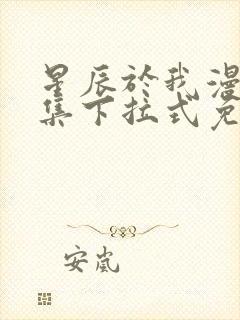 星辰於我漫
集下拉式免
安嵐